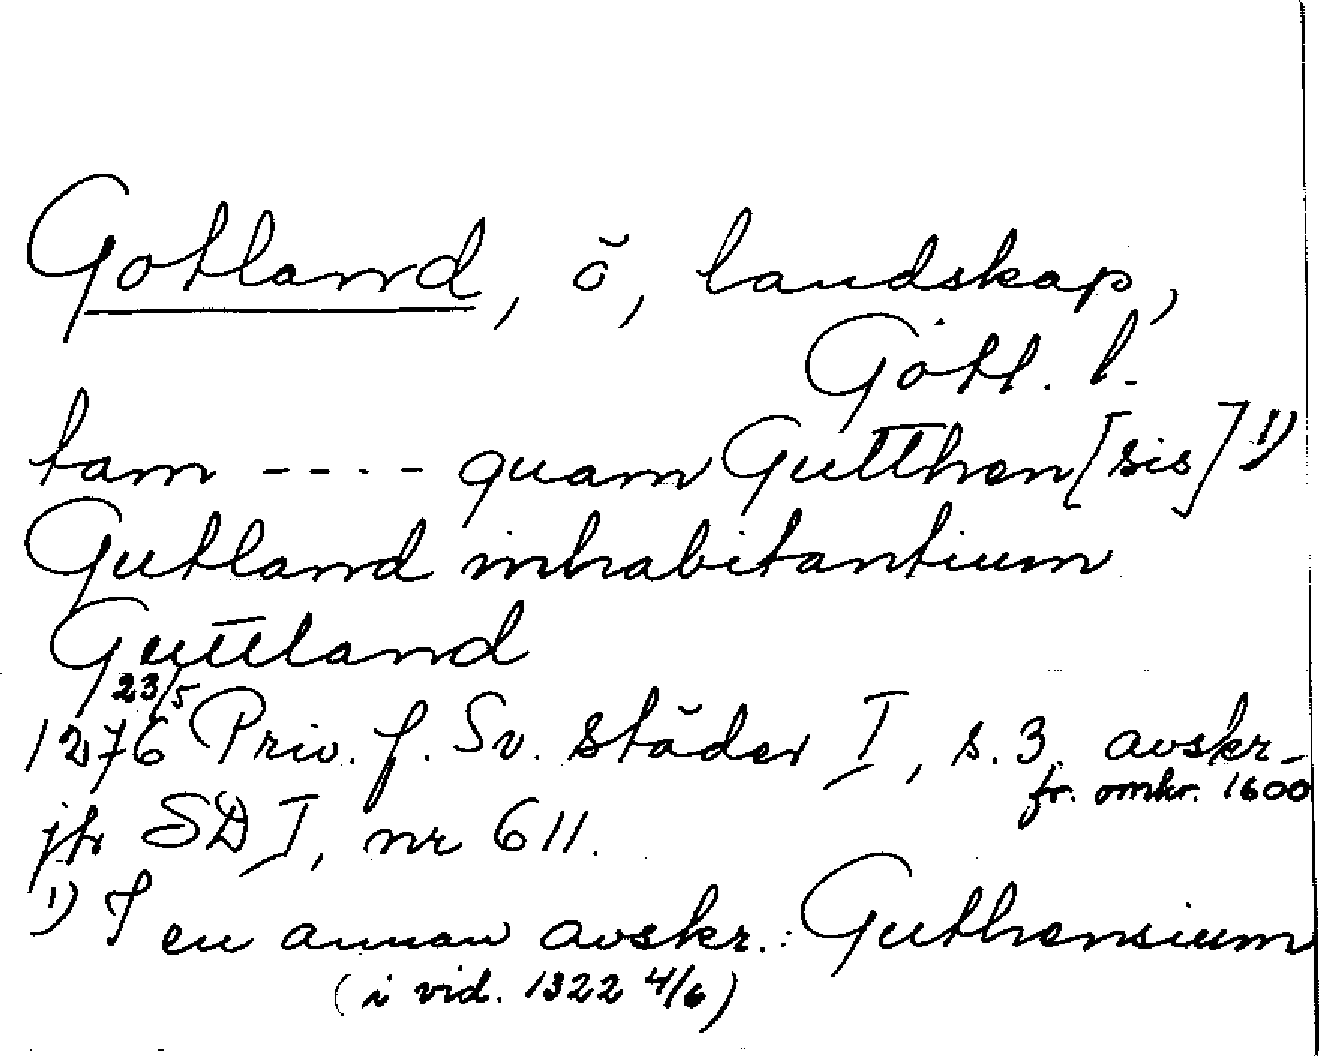 Gotland, ö, landskap,
Gotl. l.
tam ---- quam Gutthen[sis] 1)
Gutland inhabitantium
Guttland
23/5
1276 Priv. f. Sv. städer I, s. 3, avskr.
fr. omkr. 1600
jfr SD I, nr 611.
1) I en annan avskr.: Guthensium
(i vid. 1322 4/6)